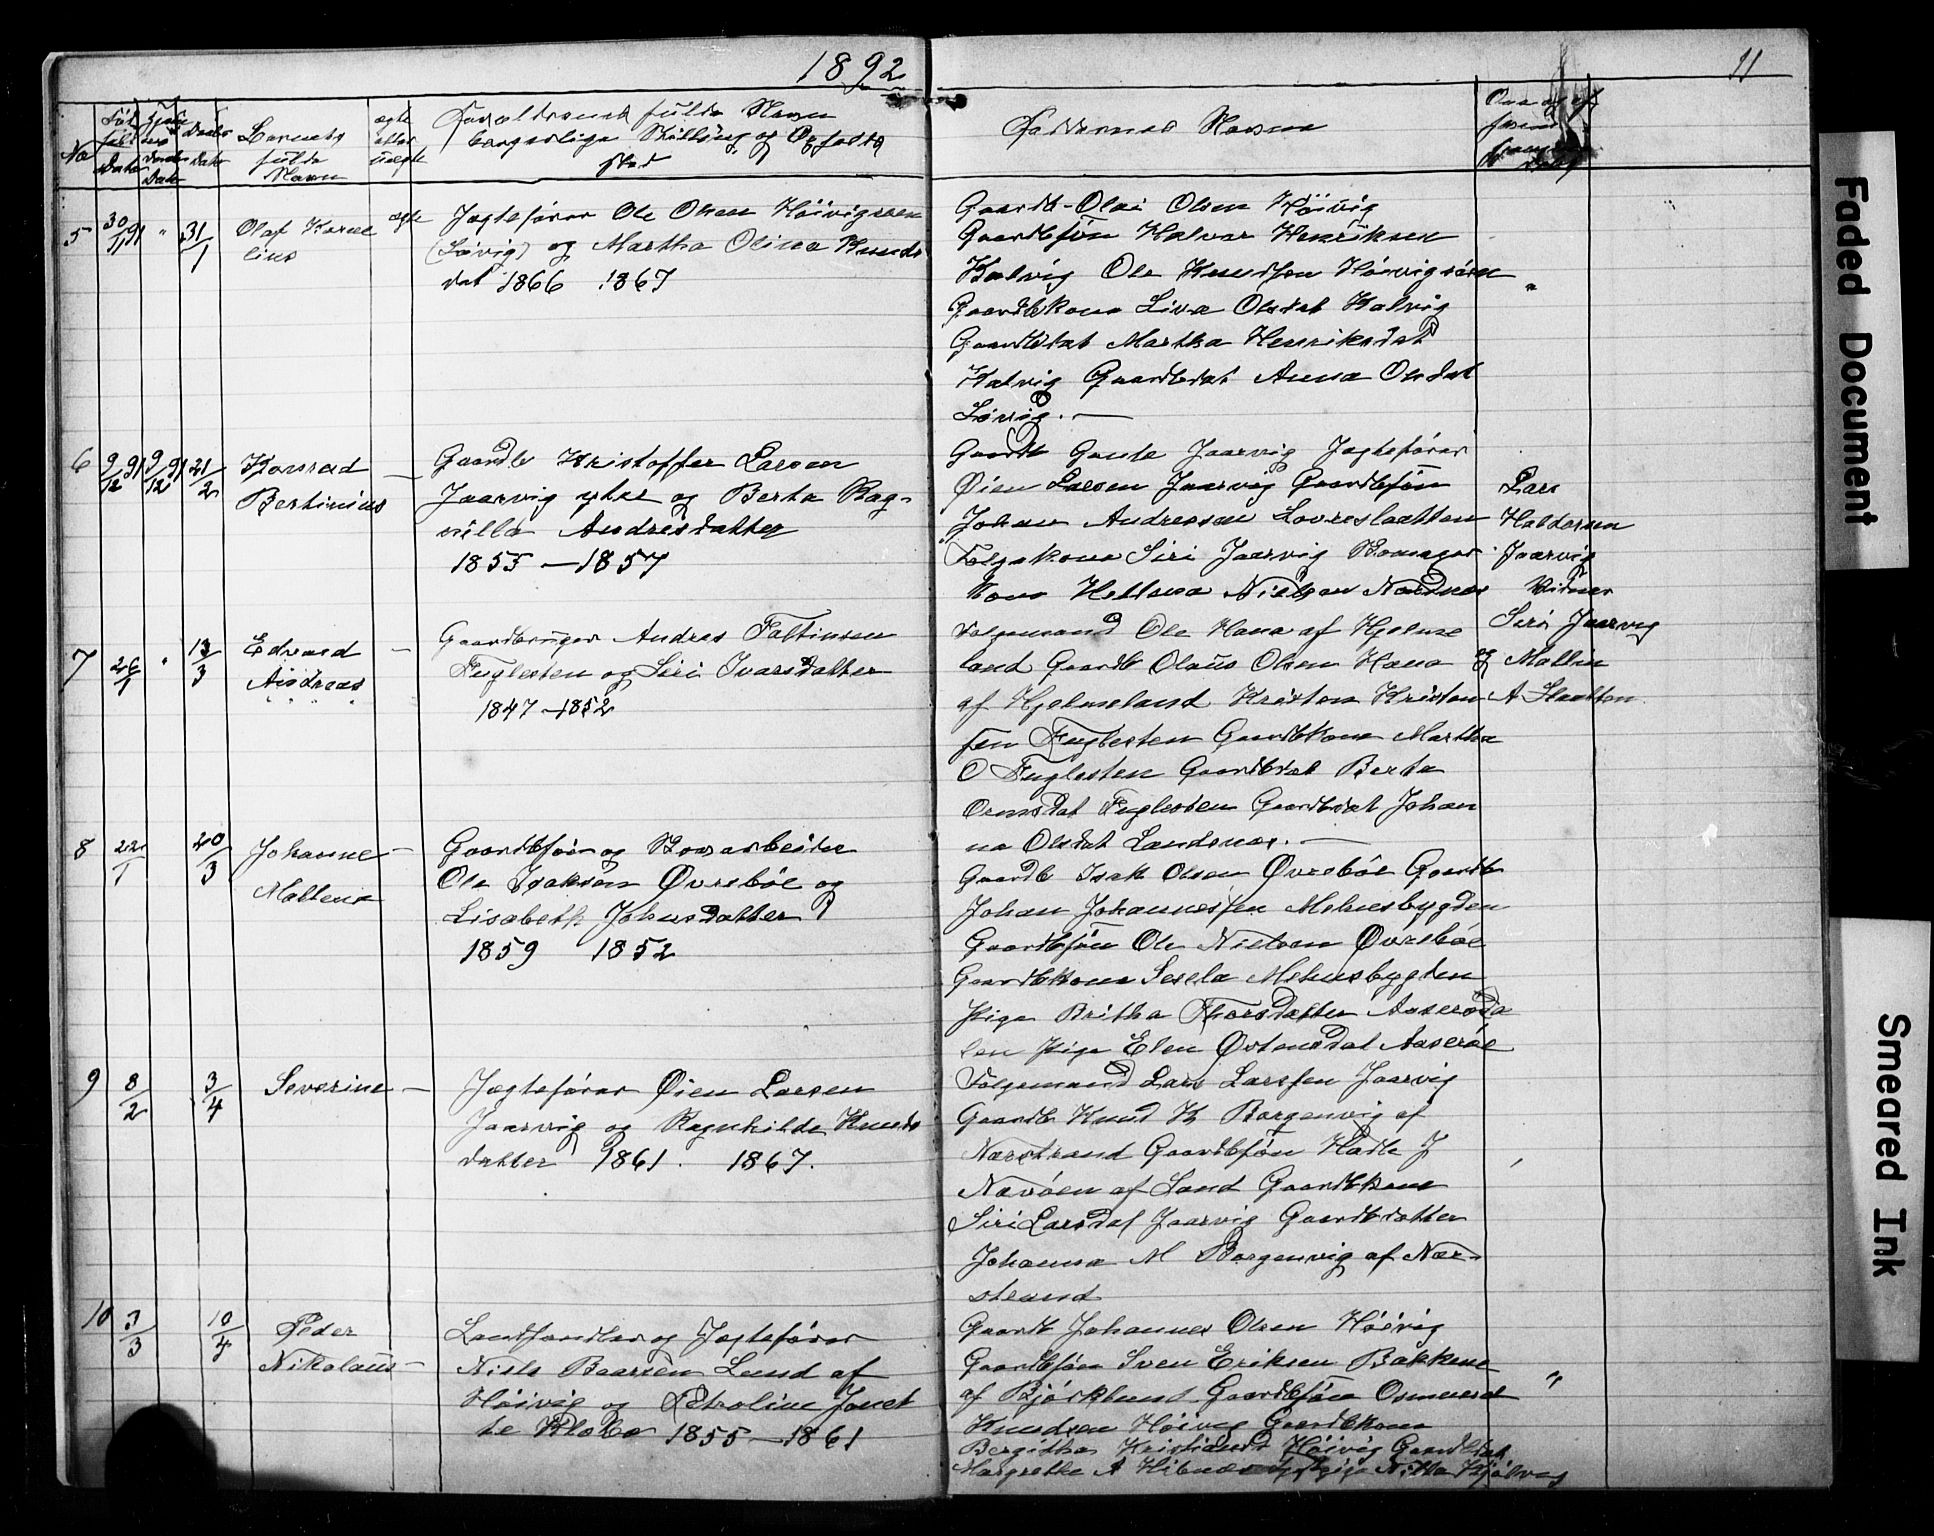 1892
11
No
Barnets
fulde
Navn
ægte
eller
uægte
Forældrenes fulde Navn
borgerlige Stilling og Opholds
sted
Faddernes Navne
5 30/11 91 " 31/1 Olaf Karne
lius
ægte
Jægtefører Ole Olsen Höivigsøen
(Løvig) og Martha Olina Knuds
dat 1866 1867
Gaardb-Olai Olsen Höivig
Gaardbsøn Halvar Henriksen
Kalvig Ole Knudsen Höivigsøen
Gaardbkone Liva Olsdat Kalvig
Gaardbdat Martha Henriksdat
Kalvig Gaardbdat Anna Olsdat
Løvig. —
"
6 9/12 91 9/12 91 21/2 Konrad
Bertinius
—
Gaardb Kristoffer Larsen
Jaarvig ytre og Berta Rag-
nilla Andreasdatter
1855 — 1857
Gaardb Gaute Jaarvig Jægtefører
Øien Larsen Jaarvig Gaardbsøn
Johan Andreasen Lovreslætten
Følgekone Siri Jaarvig
kone Nielsen Nordnes
Lars
Haldorsen
Jaarvig
Vidner
Siri Jaarvig
og Mallin
A Slaatten
7 26/1 " 13/3 Edvard
Andreas
—
Gaardbruger Andreas Faltinsen
Fuglesten og Siri Ivarsdatter
1847 — 1852
Følgemand Ole Hana af Hjelme
land Gaardb Olaus Olsen Hana
af Hjelmeland Kristen Kristen
sen Fuglesten Gaardbkone Martha
O Fuglesten Gaardbdat Berta
Ormsdat Fuglesten Gaardbdat Johan
na Olsdat Landsnæs. —
8 22/1 20/3 Johanne
Maltena
—
Gaardbsøn og Boxarbeider
Ole Isaksen Øvrebøe og
Lisabeth Johnsdatter
1859 1852
Gaardb Isak Olsen Øvrebøe Gaardb
Johan Johannessen Mehusbygden
Gaardbsøn Ole Nielsen Øvrebøe
Gaardbkone Sesela Mehusbygden
Pige Britha Thorsdatter Aaserøda
len Pige Elen Østensdat Aaserøe
9 8/2 3/4 Severine —
Jægtefører Øien Larsen
Jaarvig og Ragnhilde Knuds
datter 1861. 1867.
Følgemand Lars Larssen Jaarvig
Gaardb Knud K Borgenvig af
Nærstrand Gaardbsøn Hadle J
Nævøen af Sand Gaardbkone
Siri Larsdat Jaarvig Gaardbdatter
Johanna M Borgenvig af Nær-
strand
10 3/3 10/4 Peder
Nikolaus —
Landhandler og Jægtefører
Niels Baarsen Lund af
Höivig og Petroline Jonet
te Kloko 1855 — 1861
Gaardb Johannes Olsen Höivig
Gaardbsøn Sven Eriksen Bakkene
af Bjørklund Gaardbsøn Osmund
Knudsen Höivig Gaardbkone
Bergitha Kristiansd Höivig Gaardbdat
Margrethe A
"
Faded Document
Smeared Ink